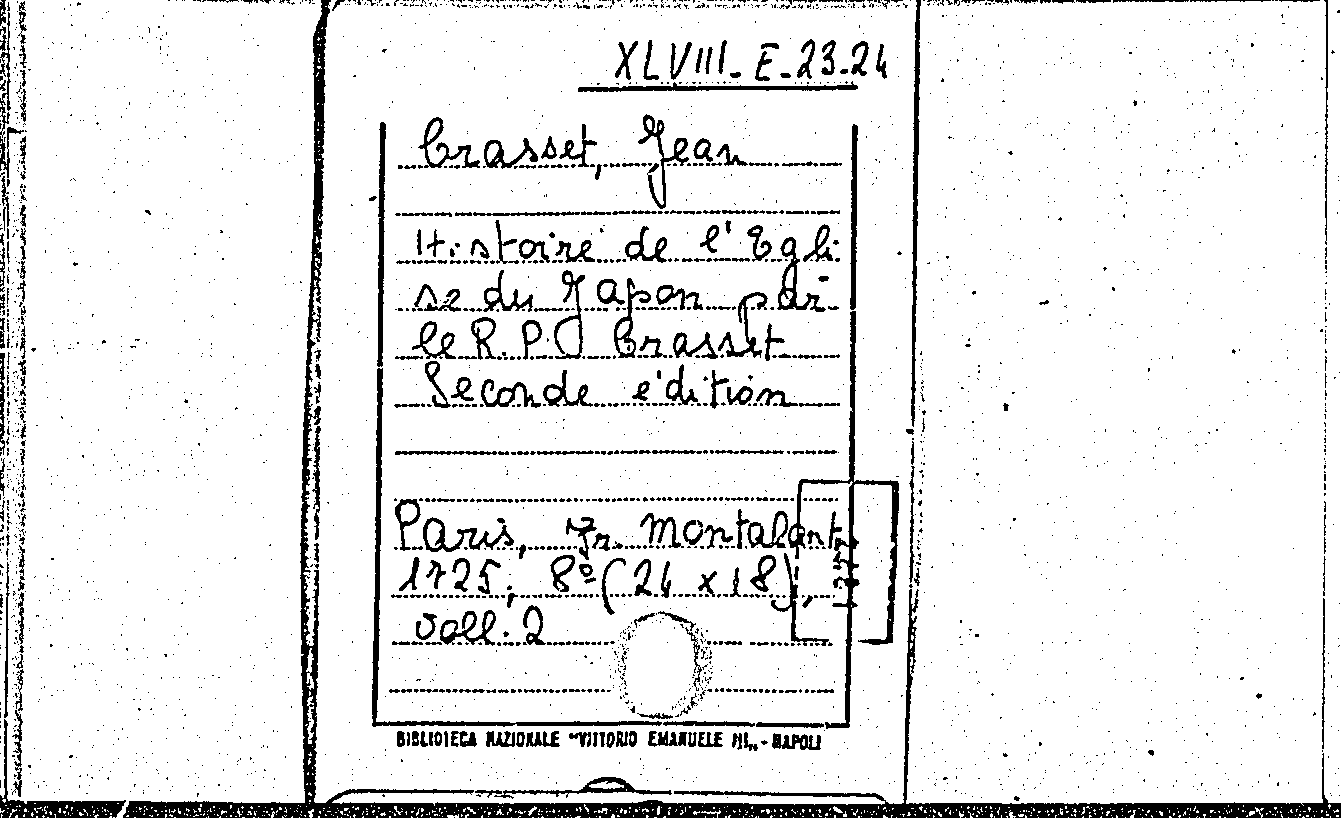 XLVIII-E-23-24
Crasset, Jean
Histoire de l'Egli
se du Japon par
le R.P.J Crasset
Seconde édition
Paris, Fr. Montalant
1725; 8º (24 x 18),
voll. 2
BIBLIOTECA NAZIONALE "VITTORIO EMANUELE III„ - NAPOLI